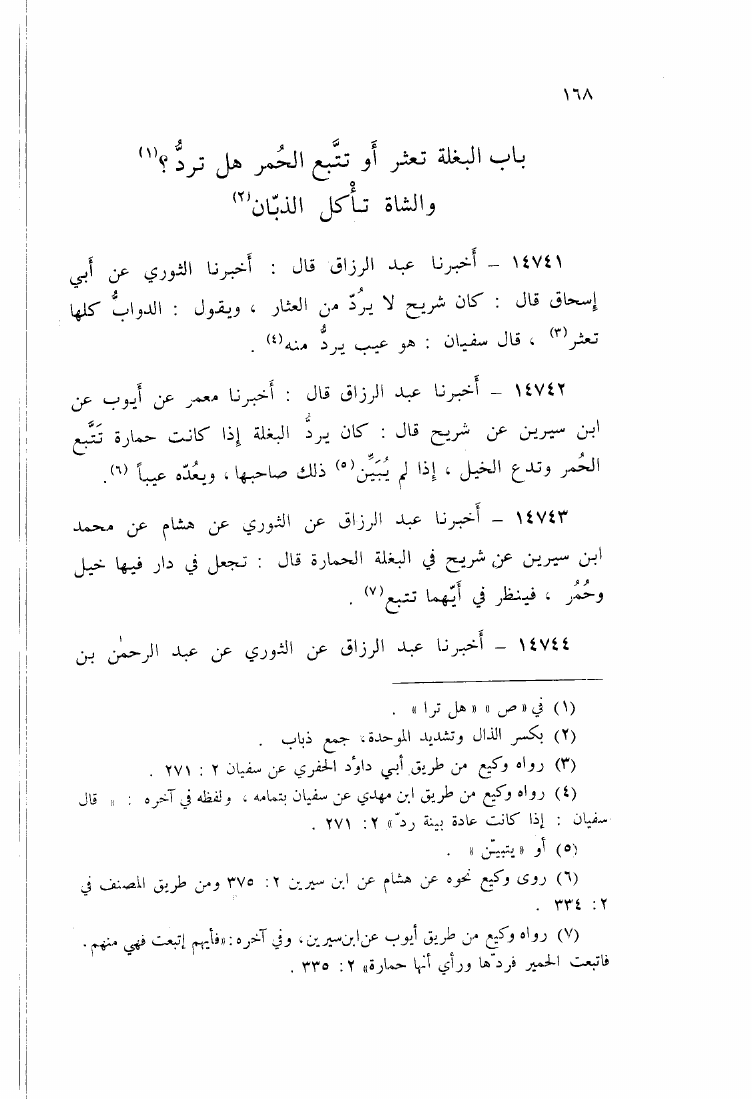 ١٦٨
باب البغلة تعثر أَو تتَّبع الحُمر هل تردُّ؟(١)
والشاة تأْكل الذبّان(٢)
١٤٧٤١ – أَخبرنا عبد الرزاق قال : أَخبرنا الثوري عن أَبي
إِسحاق قال : كان شريح لا يردُّ من العثار ، ويقول : الدوابُّ كلها
تعثر(٣) ، قال سفيان : هو عيب يردُّ منه(٤) .
١٤٧٤٢ – أَخبرنا عبد الرزاق قال : أَخبرنا معمر عن أَيوب عن
ابن سيرين عن شريح قال : كان يردُّ البغلة إِذا كانت حمارة تَتَّبع
الحُمر وتدع الخيل ، إِذا لم يُبَيِّن(٥) ذلك صاحبها ، ويعُدّه عيباً (٦).
١٤٧٤٣ – أَخبرنا عبد الرزاق عن الثوري عن هشام عن محمد
ابن سيرين عن شريح في البغلة الحمارة قال : تجعل في دار فيها خيل
وحُمُر ، فينظر في أَيّهما تتبع(٧) .
١٤٧٤٤ – أَخبرنا عبد الرزاق عن الثوري عن عبد الرحمٰن بن
(١) في « ص » « هل ترا » .
(٢) بكسر الذال وتشديد الموحدة، جمع ذباب .
(٣) رواه وكيع من طريق أبي داوُد الحفري عن سفيان ٢ : ٢٧١ .
(٤) رواه وكيع من طريق ابن مهدي عن سفيان بتمامه ، ولفظه في آخره : « قال
سفيان : إذا كانت عادة بينة ردّ » ٢ : ٢٧١ .
(٥) أو « يتبيّن » .
(٦) روى وكيع نحوه عن هشام عن ابن سيرين ٢ : ٣٧٥ ومن طريق المصنف في
٢ : ٣٣٤ .
(٧) رواه وكيع من طريق أيوب عن ابن سيرين، وفي آخره : «فأيهم إتبعت فهي منهم.
فاتبعت الحمير فردّها ورأي أنها حمارة» ٢ : ٣٣٥ .